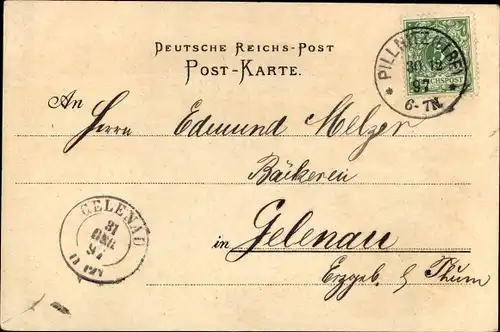 DEUTSCHE REICHS-POST
POST-KARTE.
PILLNITZ
30 12
97
6-7N.
REICHSPOST
An Herrn Edmund Melzer
Bäckerei
in Gelenau
Erzgeb. b Thum
GELENAU
31
DEC
97